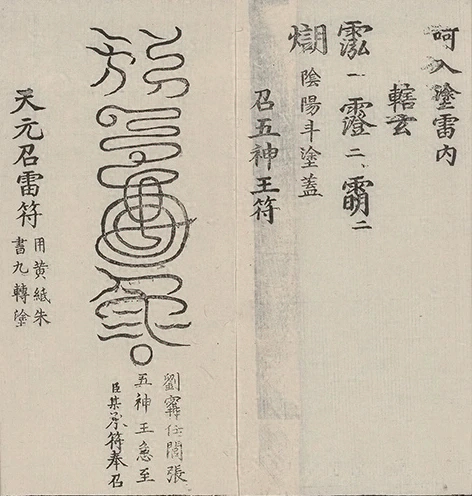 呵入塗雷内
轄玄
一 二、二
陰陽斗塗蓋
召五神王符
劉任閻張
五神王急至
臣某承符奉召
天元召雷符
用黄紙朱
書九轉塗